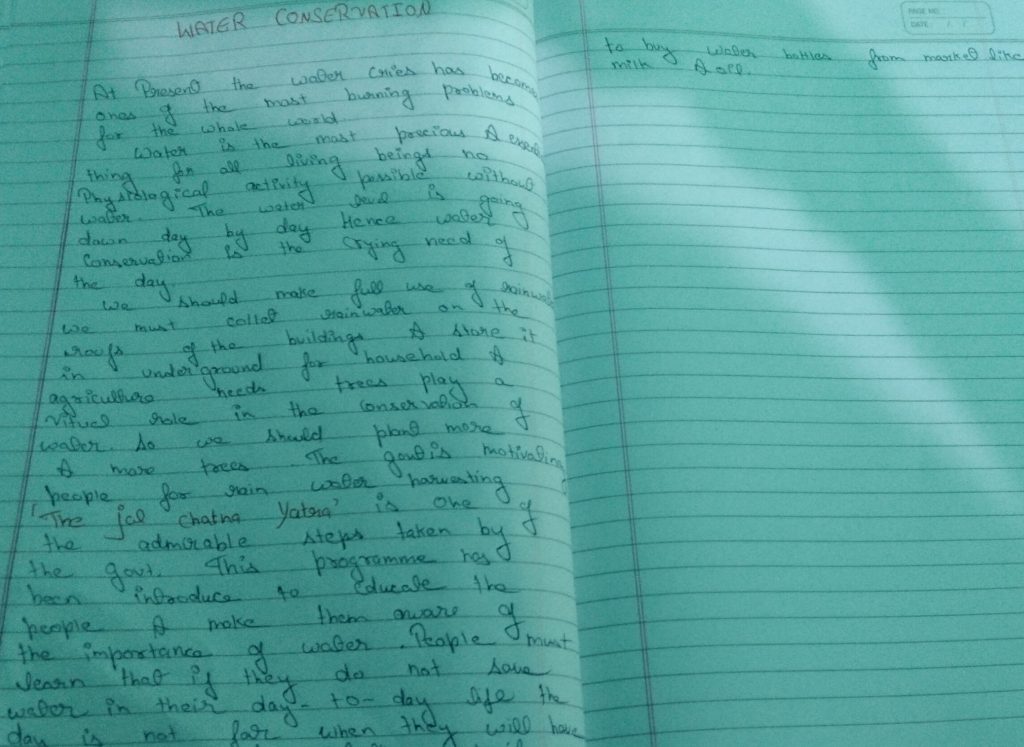 WATER CONSERVATION
At Present the water cries has become
ones of the most burning problems
for the whole world.
Water is the most precious &
thing for all living beings no
Physiological activity possible without
water. The water level is going
down day by day Hence water
Conservation is the Crying need of
the day.
We should make full use of rainwater
we must collect rainwater on the
roofs of the buildings & store it
in underground for household &
agriculture needs trees play a
vitual role in the conservation of
water. So we should plant more
& more trees. The govt is motivating
people for rain water harvesting
'The jal chatna Yatra' is one of
the admirable steps taken by
the govt. This programme has
been introduce to Educate the
people & make them aware of
the importance of water. People must
learn that if they do not save
water in their day-to-day life the
day is not far when they will have
to buy water bottles from market like
milk & oil.
PAGE NO.
DATE / /